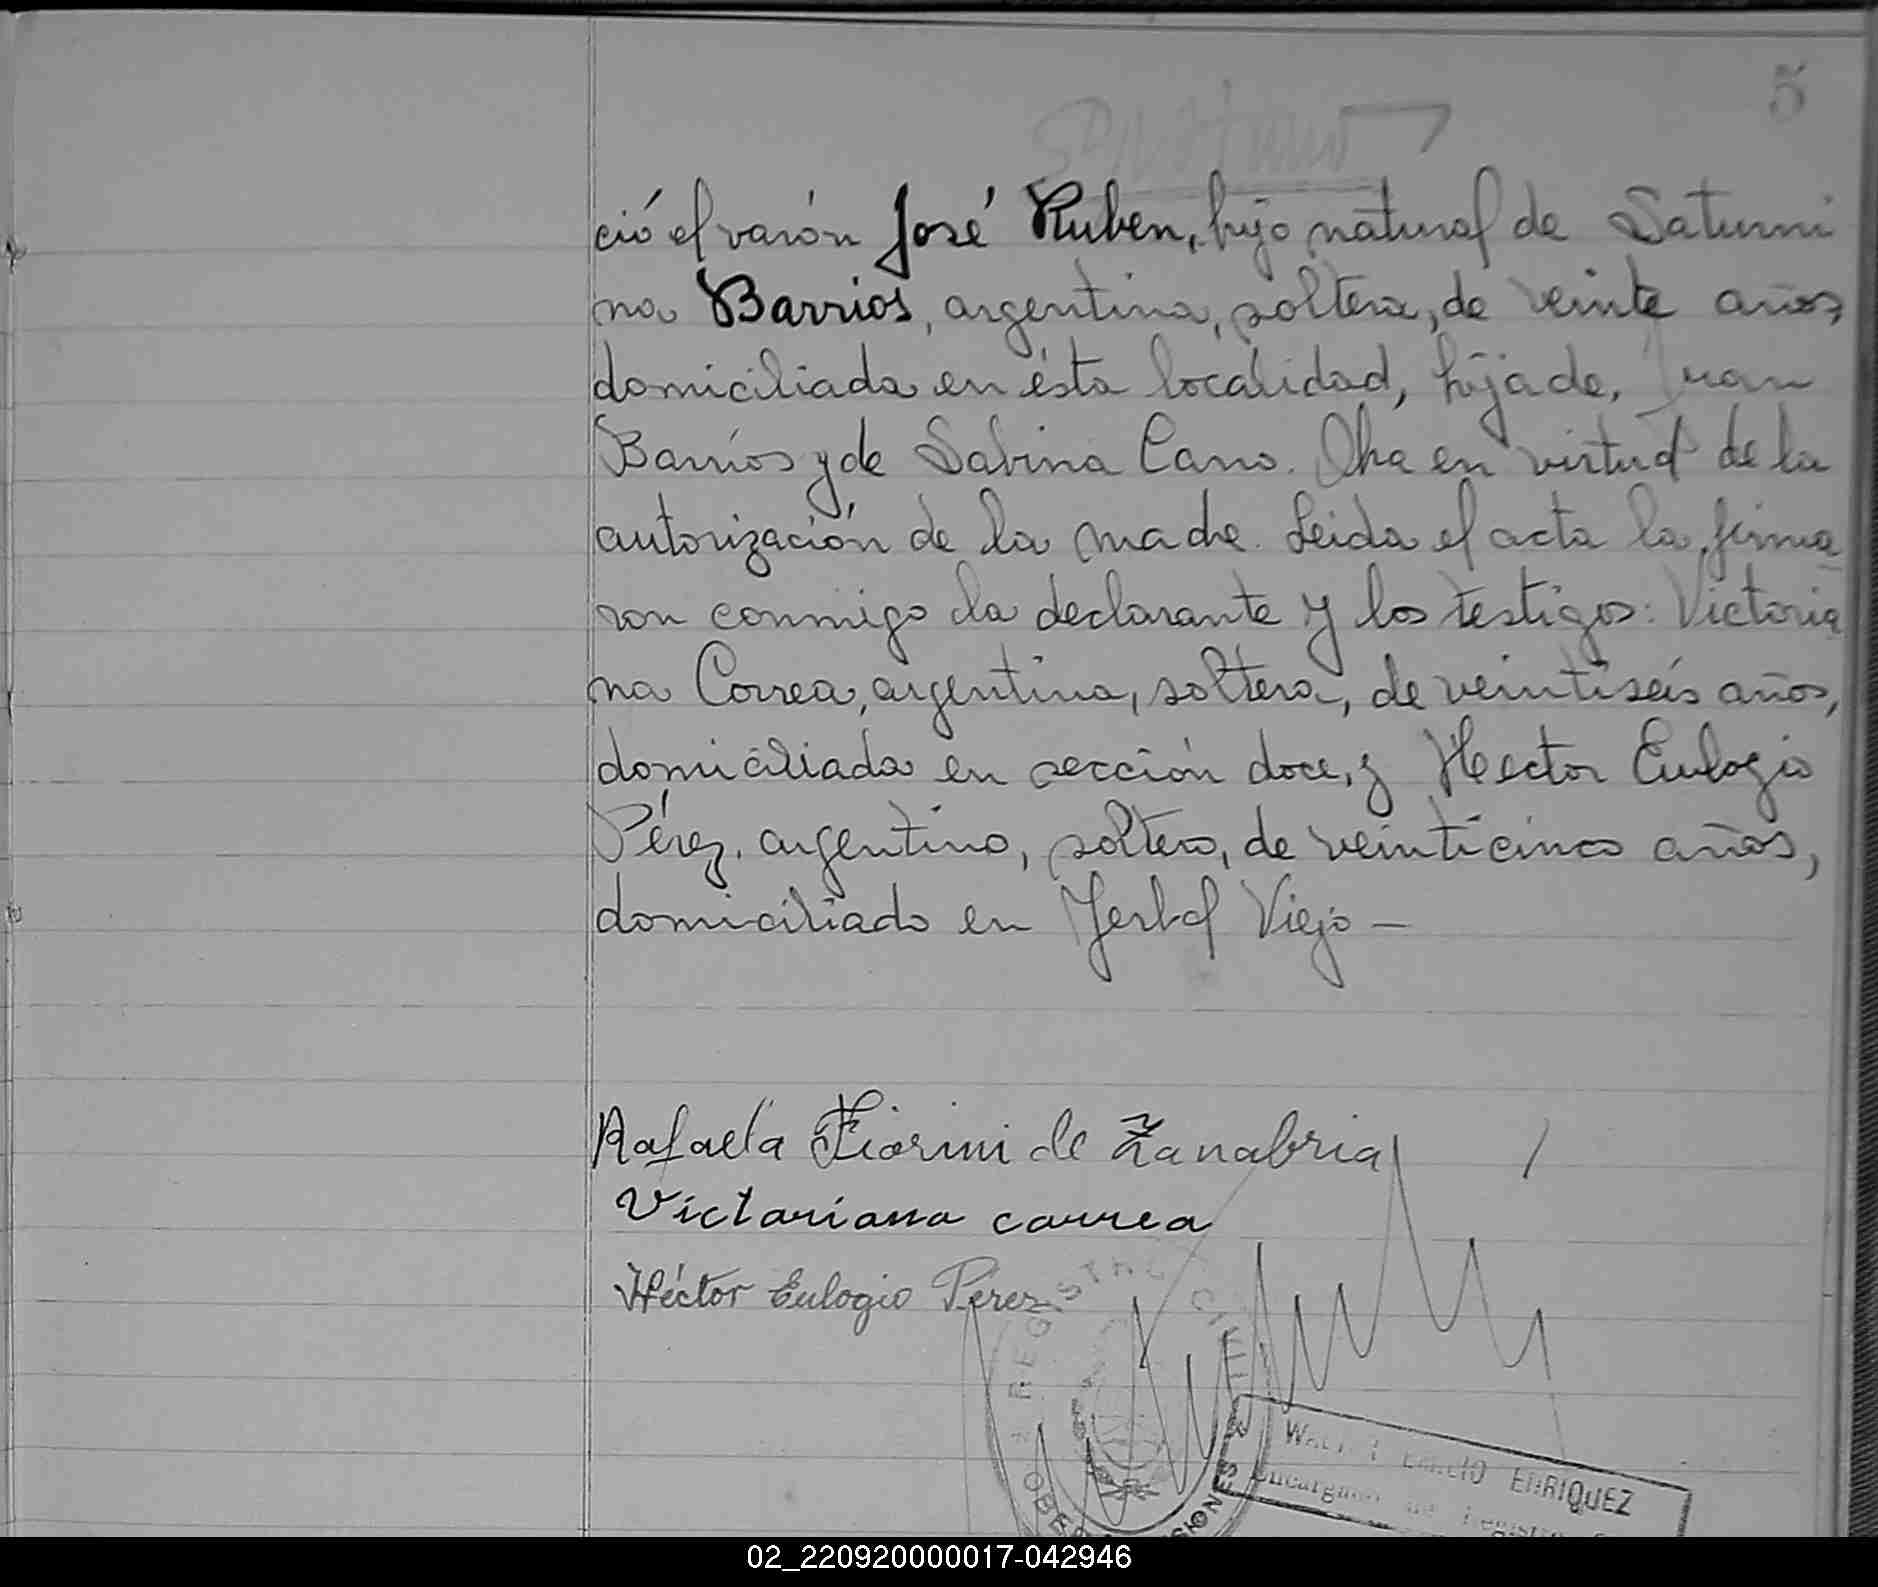 5
ció el varón José Ruben, hijo natural de Saturni
na Barrios, argentina, soltera, de veinte años,
domiciliada en ésta localidad, hija de, Juan
Barrios y de Sabina Cano. Oha en virtud de la
autorización de la madre. Leida el acta la firma
ron conmigo la declarante y los testigos: Victoria
na Correa, argentina, soltera, de veintiséis años,
domiciliada en sección doce, y Hector Eulogio
Pérez, argentino, soltero, de veinticinco años,
domiciliado en Yerbal Viejo —
Rafaela Fiorini de Zanabria
Victoriana correa
Héctor Eulogio Pérez
REGISTRO CIVIL
OBE
SIONES
ENRIQUEZ
02_220920000017-042946